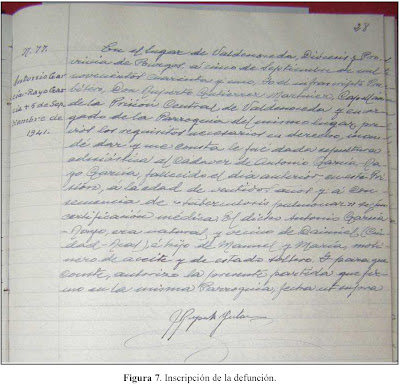 28
N. 77.
Antonio Gar-
cía-Rayo García
+ 5 de Sep-
tiembre de
1941.
En el lugar de Valdenoceda, Diócesis y Pro-
vincia de Burgos, a cinco de septiembre de mil
novecientos cuarenta y uno. Yo el infrascrito Pres-
bítero, Don Ruperto Gutiérrez Machado, Capellán
de la Prisión Central de Valdenoceda y encar-
gado de la Parroquia del mismo lugar, pre-
vios los requisitos necesarios en derecho, man-
dé dar y me consta le fue dada sepultura
eclesiástica al cadáver de Antonio García Ra-
yo García, fallecido el día anterior en esta Pri-
sión, a la edad de años y a con-
secuencia de "tuberculosis pulmonar"
certificación médica. El dicho Antonio García-
Rayo, era natural y vecino de Daimiel, (Ciu-
dad-Real), é hijo de Manuel y María, moli-
nero de aceite y de estado soltero. Y para que
conste, autorizo la presente partida que fir-
mo en la misma Parroquia, fecha ut supra
Figura 7. Inscripción de la defunción.